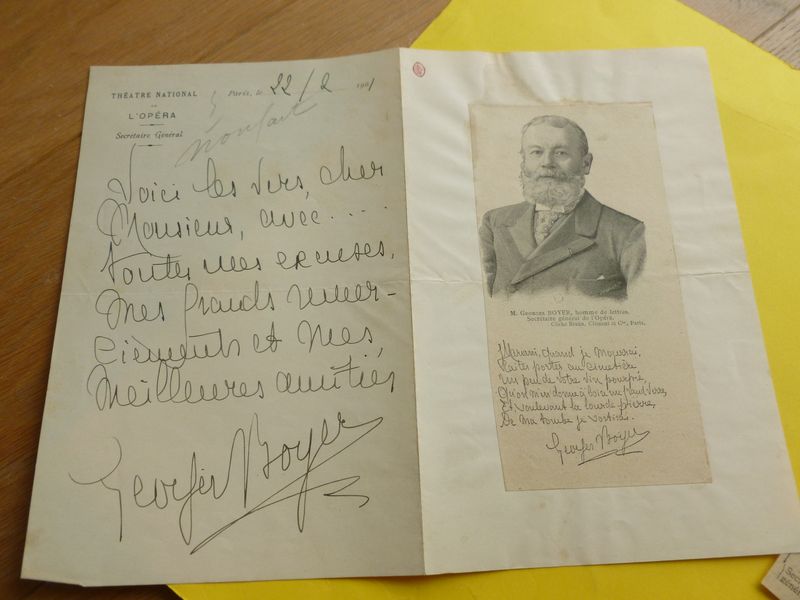 THÉATRE NATIONAL
DE
L'OPÉRA
Secrétaire Général
Paris, le 22/2 1901
Voici les vers, cher
Monsieur, avec....
toutes mes excuses,
mes grands remer-
ciements et mes
meilleures amitiés
Georges Boyer
M. GEORGES BOYER, homme de lettres.
Secrétaire général de l'Opéra.
Cliché Braun, Clément et Cie, Paris.
Mariani, quand je mourrai,
Faites porter au cimetière
Un peu de votre vin pourpré,
Qu'on m'en donne à boire un grand verre,
Et soulevant la lourde pierre,
De ma tombe je sortirai.
Georges Boyer